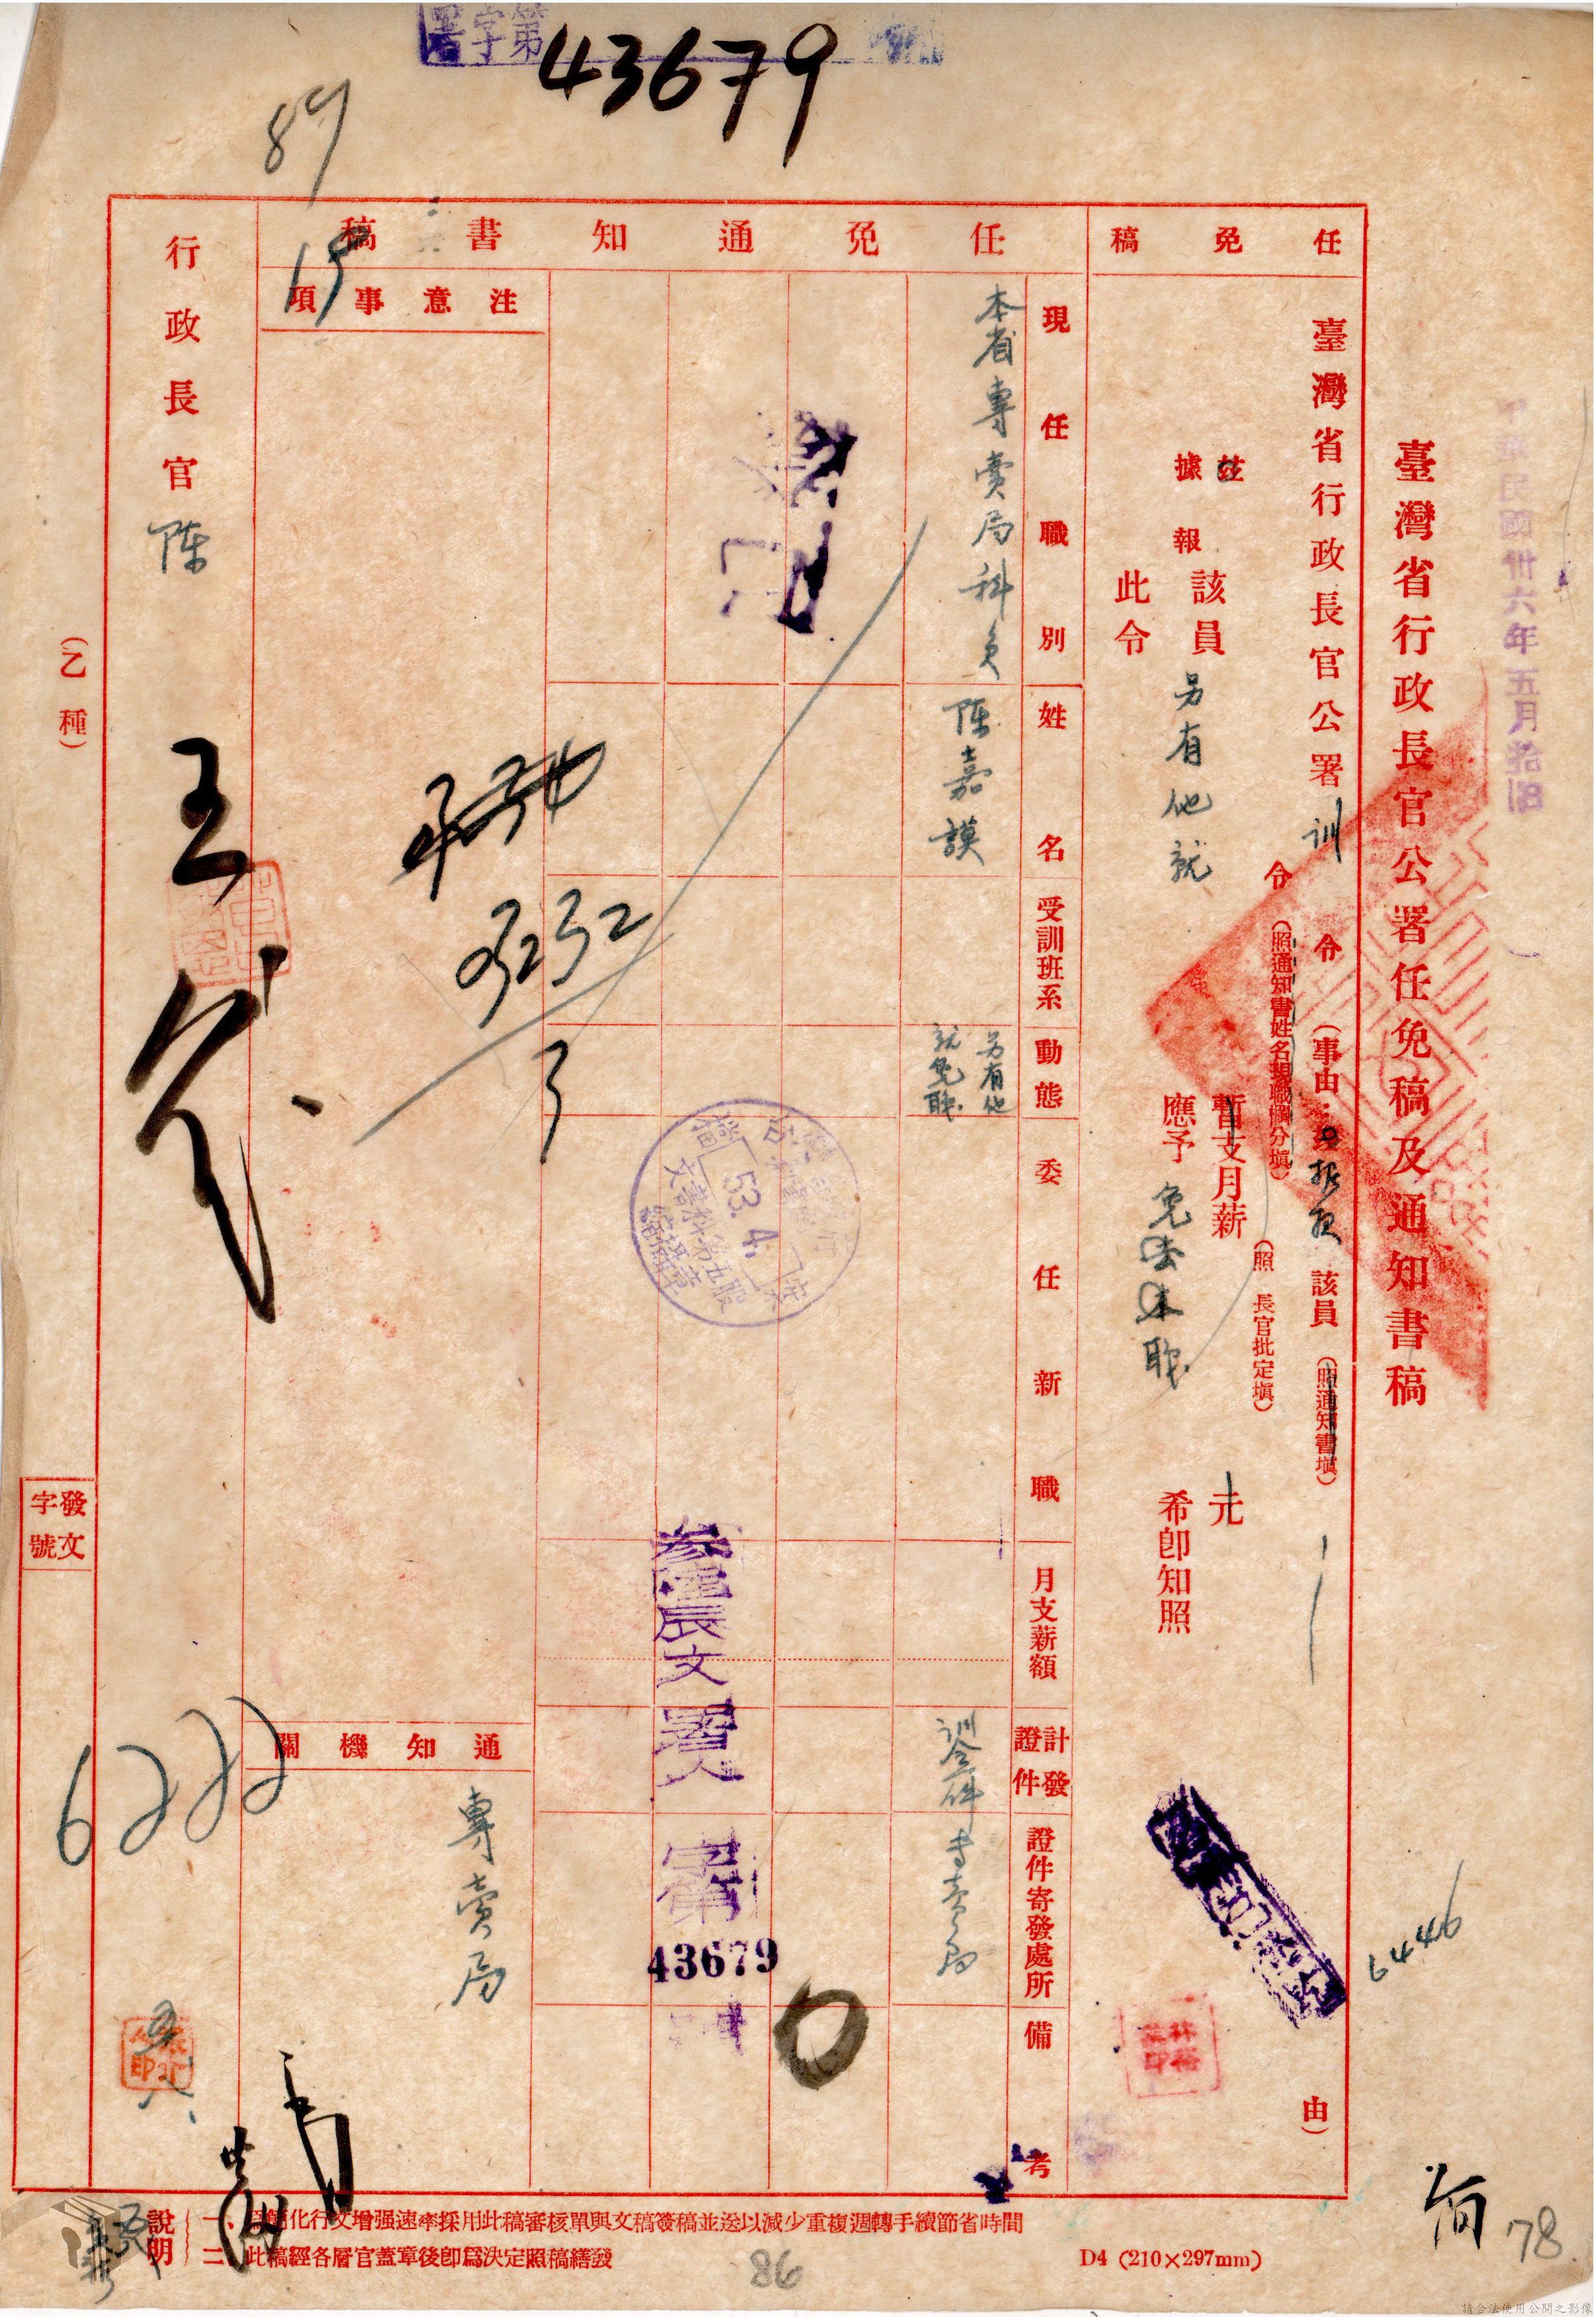 署字第
43679
89
15
中華民國卅六年五月拾
臺灣省行政長官公署任免稿及通知書稿
任免稿
臺灣省行政長官公署訓令(事由:據報該員(照通知書填)由)
令(照通知書姓名現職欄分填)
茲
據報
該員另有他就
暫支月薪(照長官批定填)元
應予免去本職
希卽知照
此令
任免通知書稿
現任職別
姓名
受訓班系
動態
委任新職
月支薪額
計發證件
證件寄發處所
備考
本省專賣局科員
陳嘉謨
另有他就免職
訓令一件
專賣局
參陸辰文
署
字第
43679
53.4.
文書科第五股
注意事項
通知機關
專賣局
行政長官陳
(乙種)
發文字號
6222
6446
說明
一、爲簡化行文增强速率採用此稿審核單與文稿簽稿並送以減少重複週轉手續節省時間
二、此稿經各層官蓋章後卽爲決定照稿繕發
D4 (210×297mm)
86
78
請合法使用公開之影像